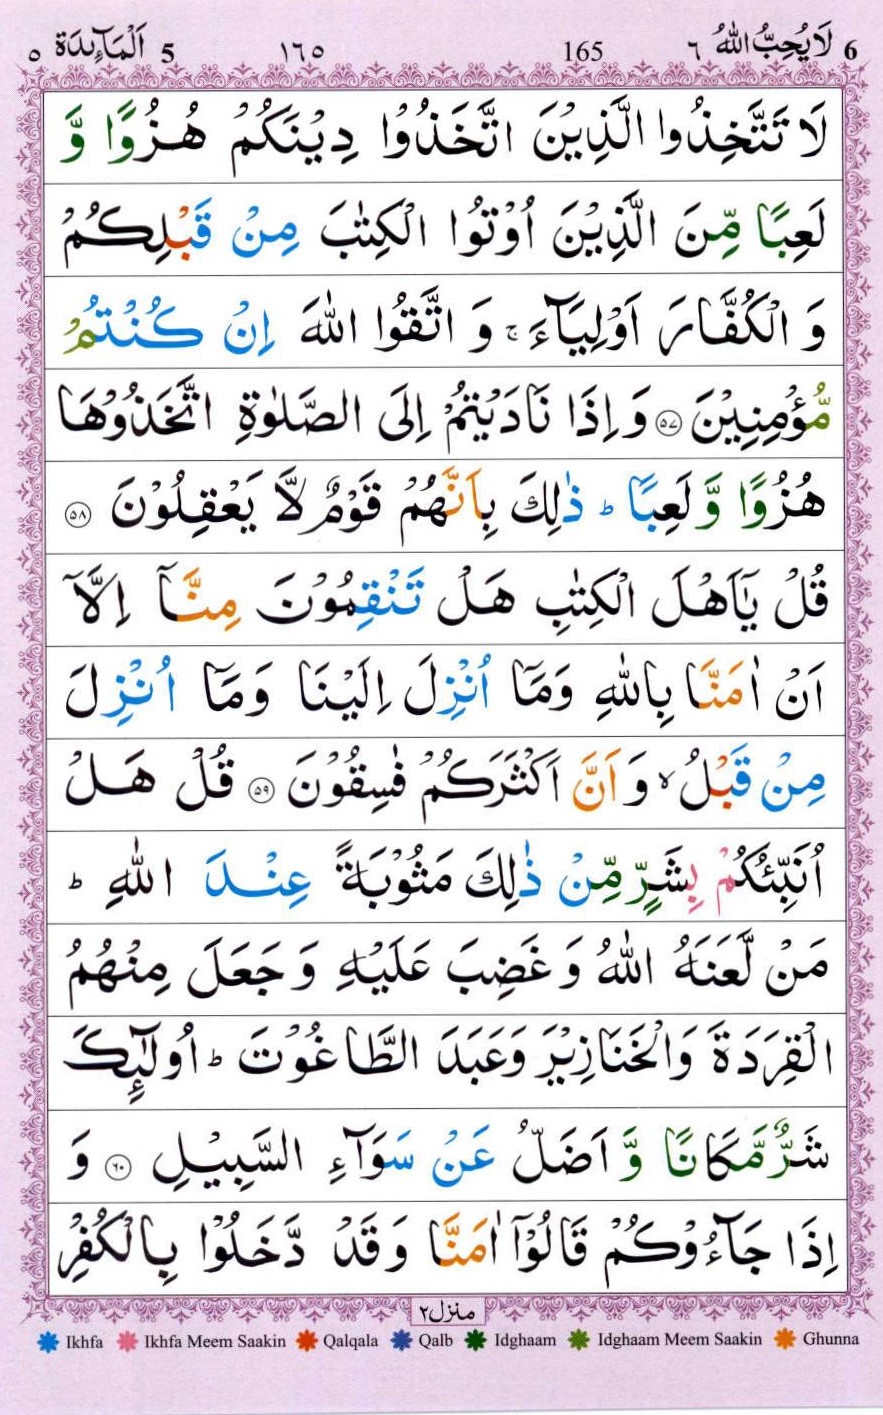 6 لَا يُحِبُّ اللّٰهُ ٦ 165 ١٦٥ 5 اَلْمَآئِدَة ٥
لَا تَتَّخِذُوا الَّذِيْنَ اتَّخَذُوْا دِيْنَكُمْ هُزُوًا وَّ
لَعِبًا مِّنَ الَّذِيْنَ اُوْتُوا الْكِتٰبَ مِنْ قَبْلِكُمْ
وَ الْكُفَّارَ اَوْلِيَآءَ ۚ وَ اتَّقُوا اللّٰهَ اِنْ كُنْتُمْ
مُّؤْمِنِيْنَ ﴿٥٧﴾ وَ اِذَا نَادَيْتُمْ اِلَى الصَّلٰوةِ اتَّخَذُوْهَا
هُزُوًا وَّ لَعِبًا ؕ ذٰلِكَ بِاَنَّهُمْ قَوْمٌ لَّا يَعْقِلُوْنَ ﴿٥٨﴾
قُلْ يٰۤاَهْلَ الْكِتٰبِ هَلْ تَنْقِمُوْنَ مِنَّاۤ اِلَّاۤ
اَنْ اٰمَنَّا بِاللّٰهِ وَمَاۤ اُنْزِلَ اِلَيْنَا وَمَاۤ اُنْزِلَ
مِنْ قَبْلُ ۙ وَ اَنَّ اَكْثَرَكُمْ فٰسِقُوْنَ ﴿٥٩﴾ قُلْ هَلْ
اُنَبِّئُكُمْ بِشَرٍّ مِّنْ ذٰلِكَ مَثُوْبَةً عِنْدَ اللّٰهِ ؕ
مَنْ لَّعَنَهُ اللّٰهُ وَ غَضِبَ عَلَيْهِ وَ جَعَلَ مِنْهُمُ
الْقِرَدَةَ وَالْخَنَازِيْرَ وَعَبَدَ الطَّاغُوْتَ ؕ اُولٰٓئِكَ
شَرٌّ مَّكَانًا وَّ اَضَلُّ عَنْ سَوَآءِ السَّبِيْلِ ﴿٦٠﴾ وَ
اِذَا جَآءُوْكُمْ قَالُوْۤا اٰمَنَّا وَ قَدْ دَّخَلُوْا بِالْكُفْرِ
منزل٢
Ikhfa Ikhfa Meem Saakin Qalqala Qalb Idghaam Idghaam Meem Saakin Ghunna